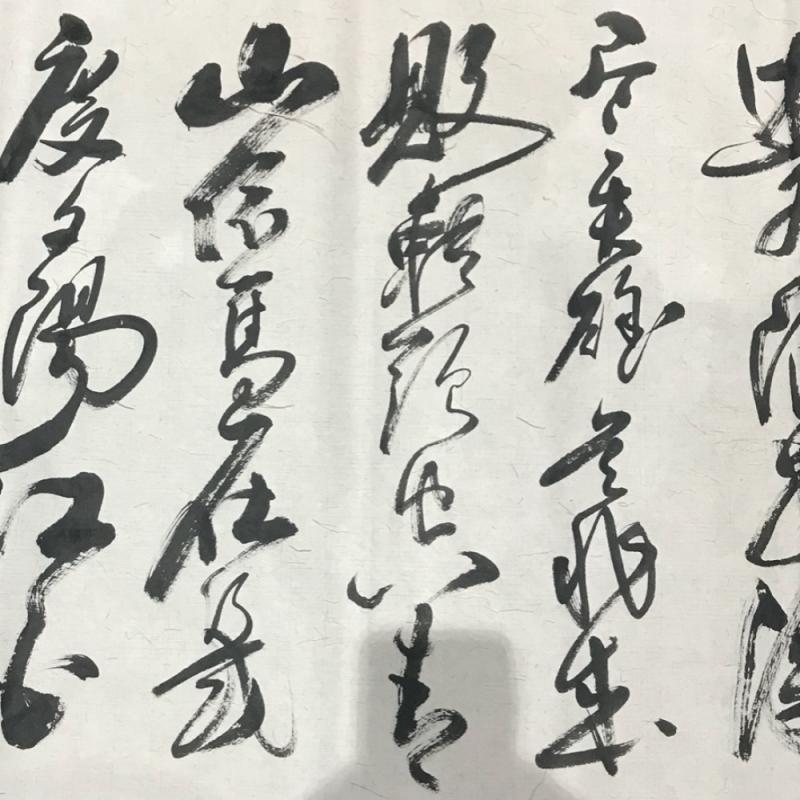 尽英雄是非成
敗轉頭空青
山依舊在幾
度夕陽紅白